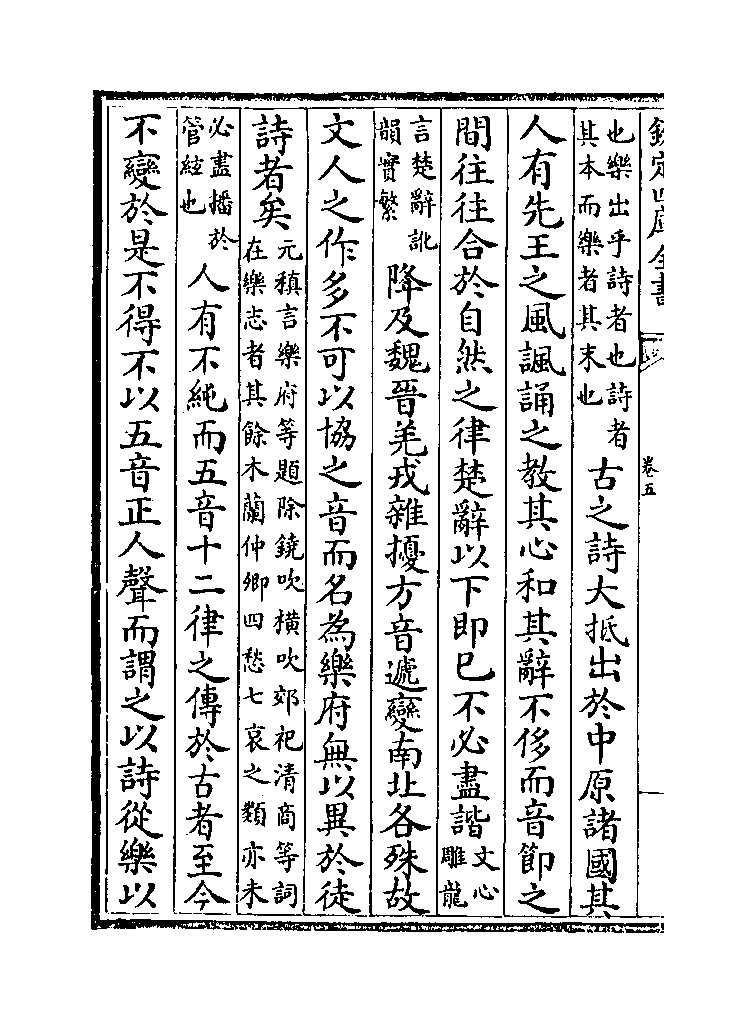 欽定四庫全書
卷五
也樂出乎詩者也詩者
其本而樂者其末也
古之詩大抵出於中原諸國其
人有先王之風諷誦之教其心和其辭不侈而音節之
間往往合於自然之律楚辭以下即已不必盡諧
文心
雕龍
言楚辭訛
韻實繁
降及魏晉羌戎雜擾方音遞變南北各殊故
文人之作多不可以協之音而名為樂府無以異於徒
詩者矣
元稹言樂府等題除鐃吹橫吹郊祀清商等詞
在樂志者其餘木蘭仲卿四愁七哀之類亦未
必盡播於
管絃也
人有不純而五音十二律之傳於古者至今
不變於是不得不以五音正人聲而謂之以詩從樂以